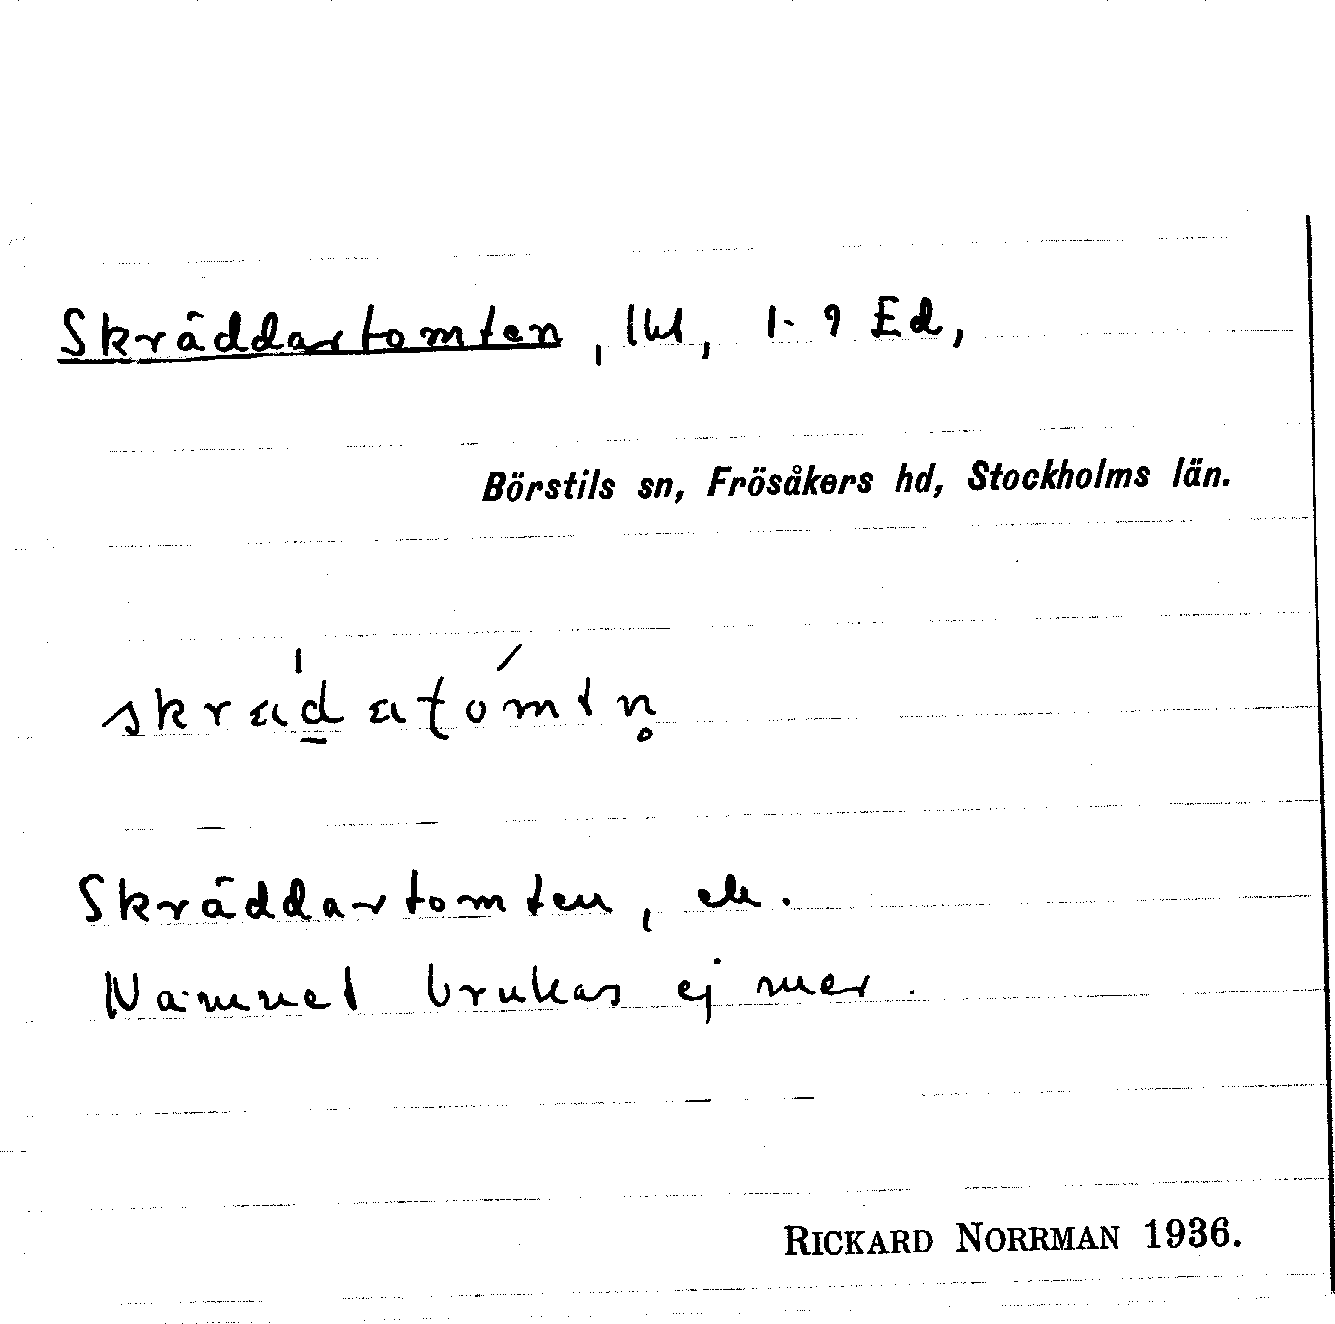 Skräddartomten, lht, 1-9 Ed,
Börstils sn, Frösåkers hd, Stockholms län.
Skräddartomten, ek.
Namnet brukas ej mer.
RICKARD NORRMAN 1936.